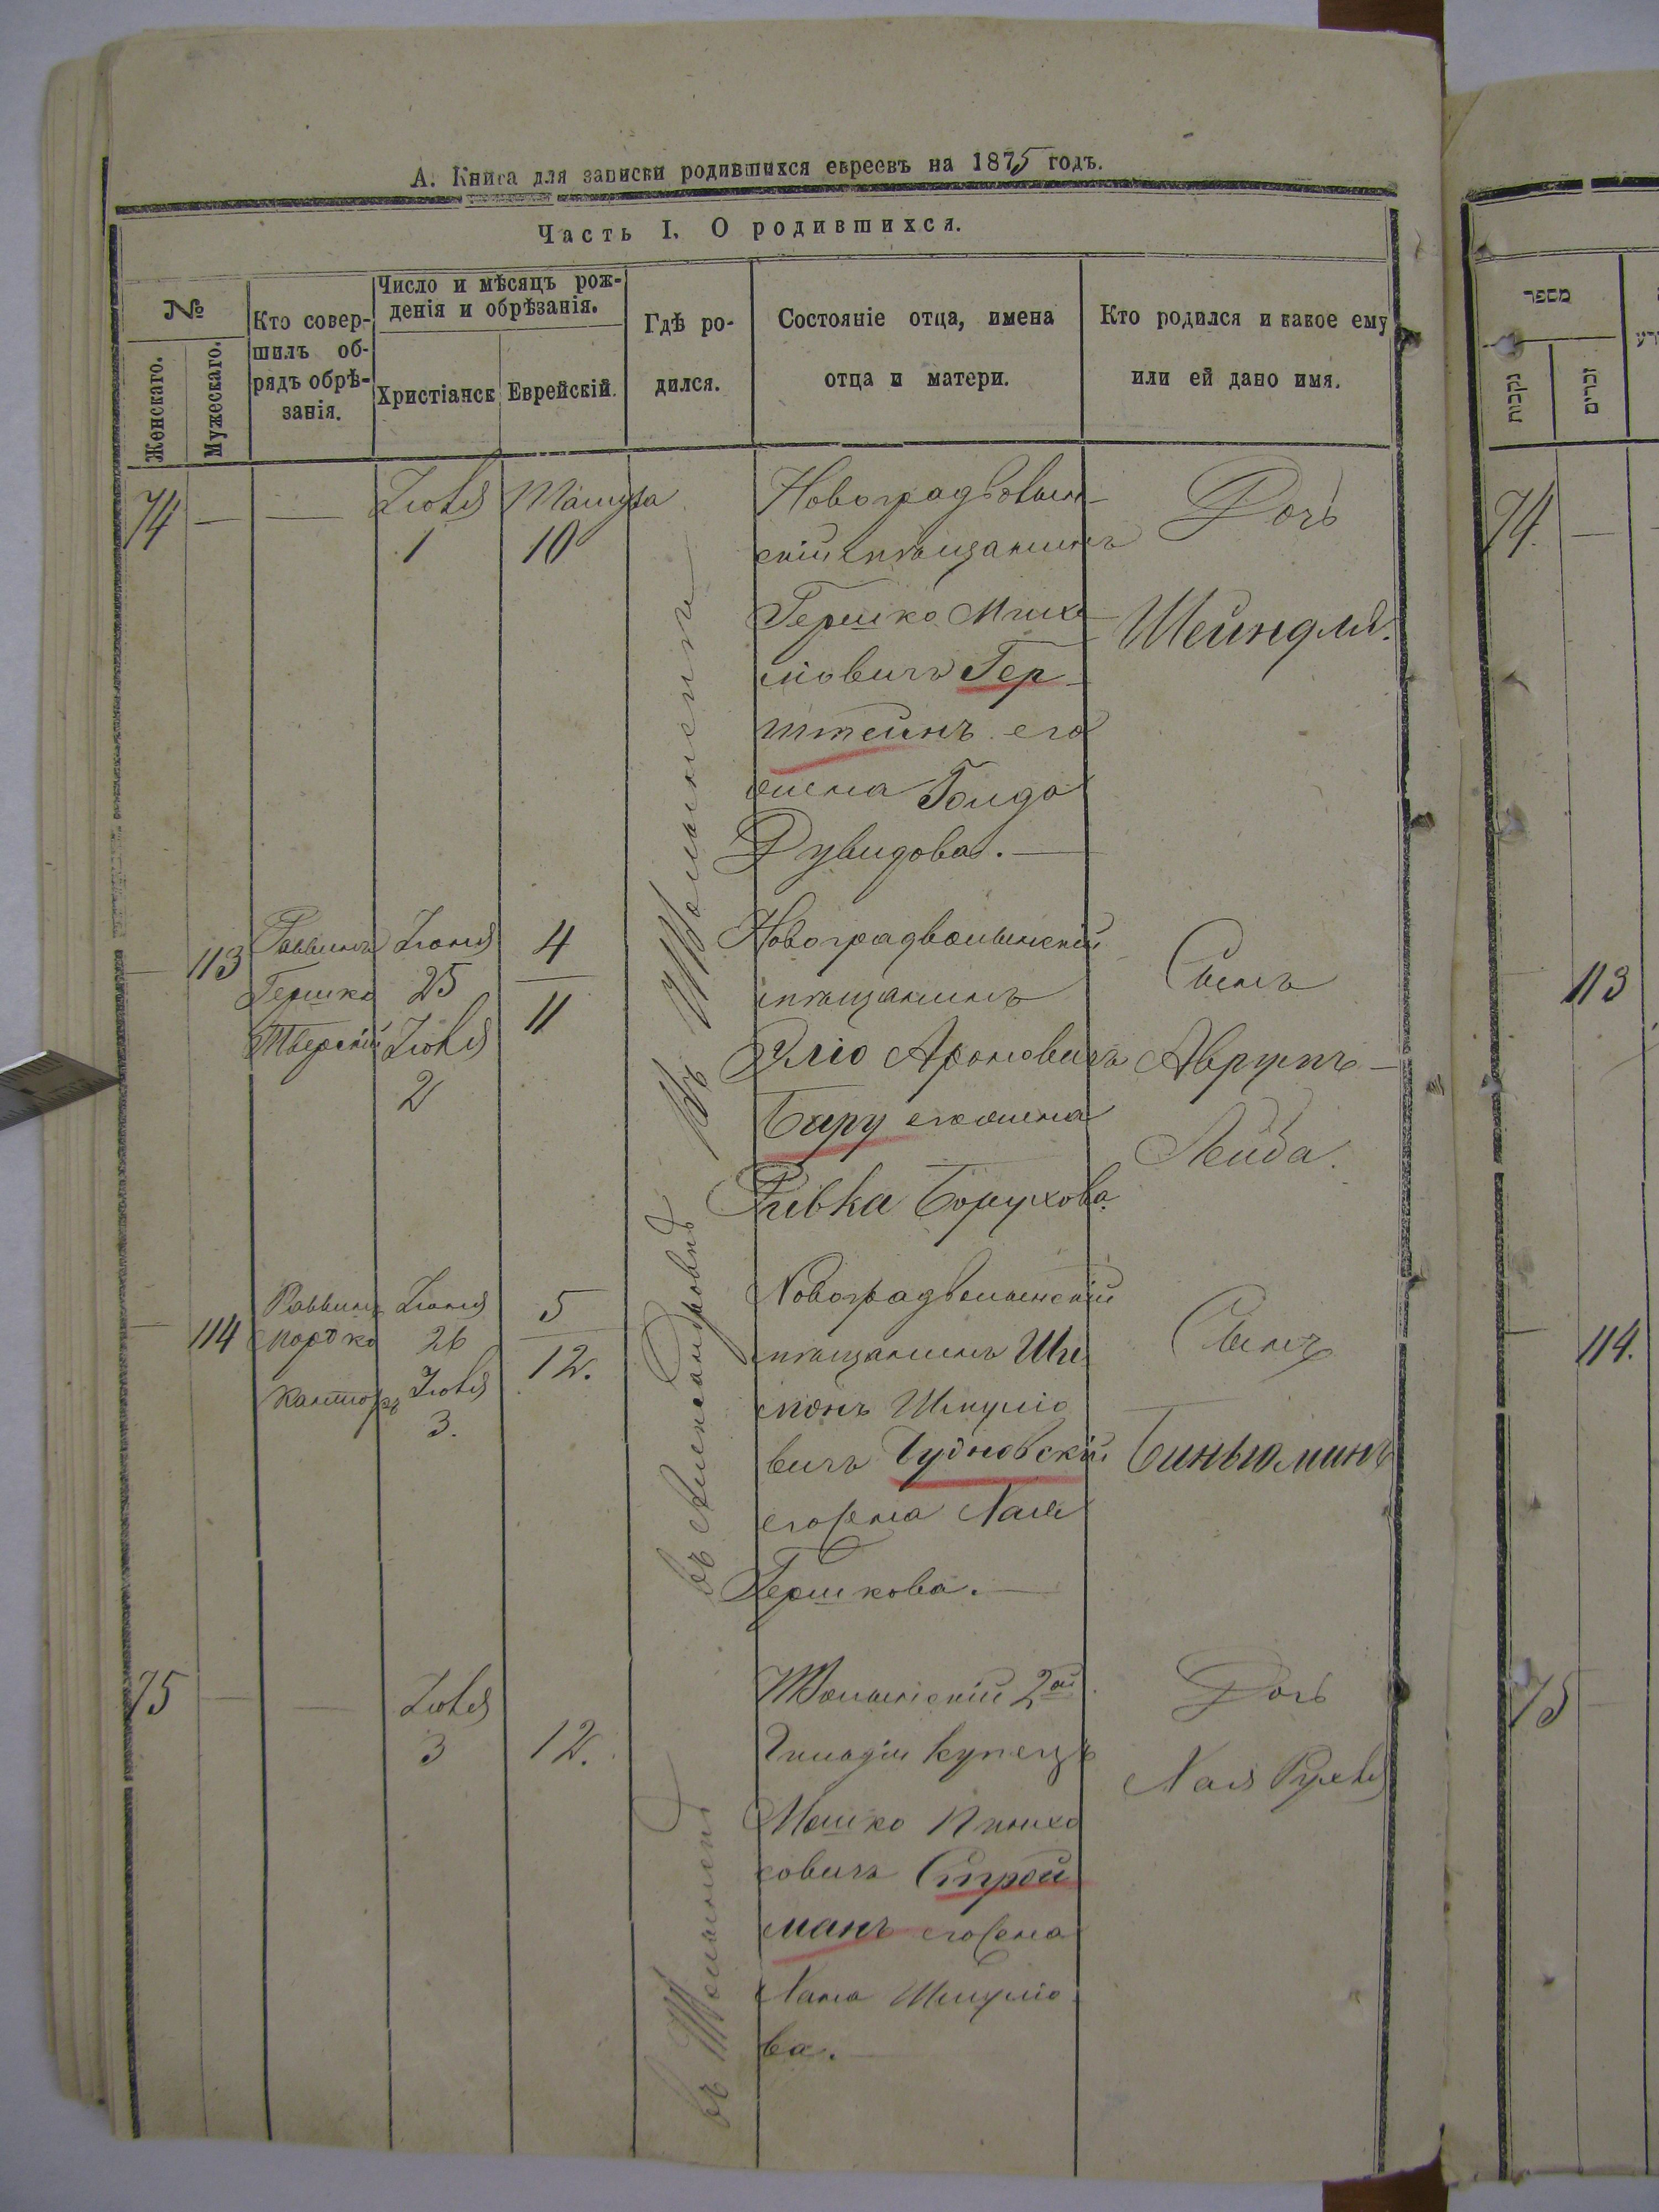 А. Книга для записки родившихся евреевъ на 1875 годъ.
Часть I. О родившихся.
№
Женскаго.
Мужескаго.
Кто совер-
шилъ об-
рядъ обрѣ-
занія.
Число и мѣсяцъ рож-
денія и обрѣзанія.
Христіанск
Еврейскій.
Гдѣ ро-
дился.
Состояніе отца, имена
отца и матери.
Кто родился и какое ему
или ей дано имя.
74 — —
Іюля
1
Тамуза
10
Новоградволын-
скій мѣщанинъ
Гершко Михе-
ліовичъ Гер-
штейнъ его
жена Голда
Дувидова. —
Дочь
Шейндля.
— 113
Раввинъ
Гершко
Тверскій
Іюня
25
Іюля
2
4
11
Новоградволынскій
мѣщанинъ
Эліо Ароновичъ
Беру его жена
Ривка Борухова.
Сынъ
Аврумъ-
Лейба.
— 114
Раввинъ
Мордко
Канторъ
Іюня
26
Іюля
3.
5
12.
въ Александровкѣ
Новоградволынскій
мѣщанинъ Ши-
монъ Шмуліо
вичъ Чудновскій
его жена Хая
Гершкова. —
Сынъ
Биньюминъ
75 — —
Іюля
3
12.
2ой
Гильдіи купецъ
Мошко Пинхо
совичъ Строй
манъ его жена
Хана Шмуліо
ва. —
Дочь
Хая Рухля
מספר
נקבות
זכרים
74. —
113
— 114.
75 —